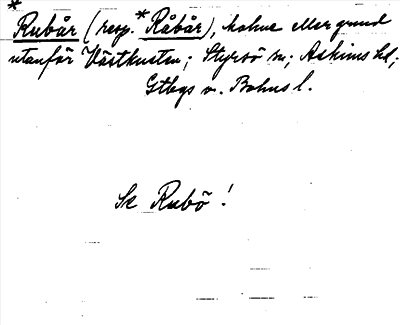 *Rubår (resp. *Råbår), holme eller grund
utanför Västkusten; Styrsö sn; Askims hd;
Gtbgs o. Bohus l.
Se Rubö!